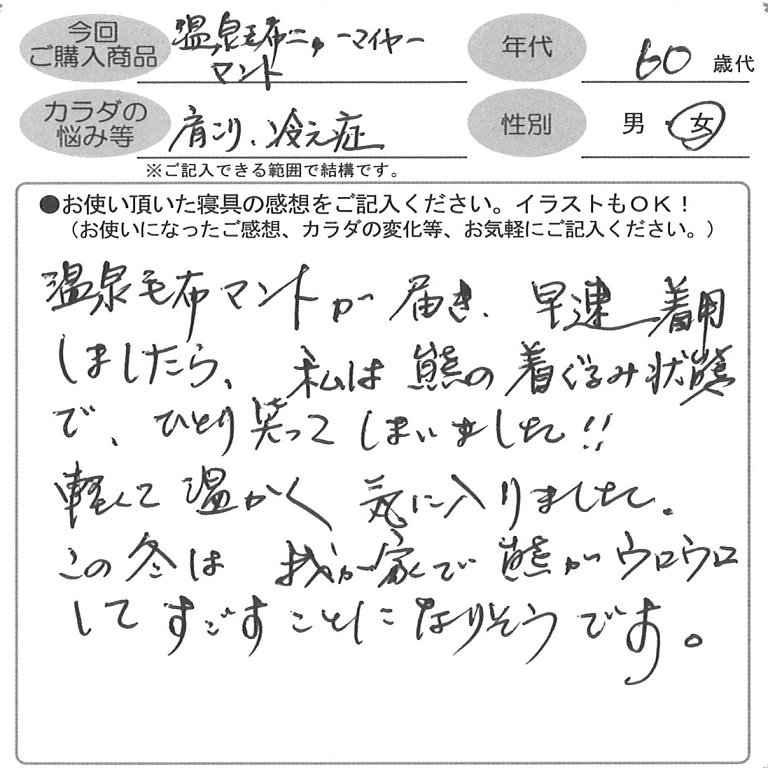 今回
ご購入商品
温泉毛布ニューマイヤー
マント
年代
60 歳代
カラダの
悩み等
肩こり、冷え症
性別
男・女
※ご記入できる範囲で結構です。
●お使い頂いた寝具の感想をご記入ください。イラストもOK！
（お使いになったご感想、カラダの変化等、お気軽にご記入ください。）
温泉毛布マントが届き、早速着用
しましたら、私は熊の着ぐるみ状態
で、ひとり笑ってしまいました!!
軽くて温かく気に入りました。
この冬は我が家で熊がウロウロ
してすごすことになりそうです。